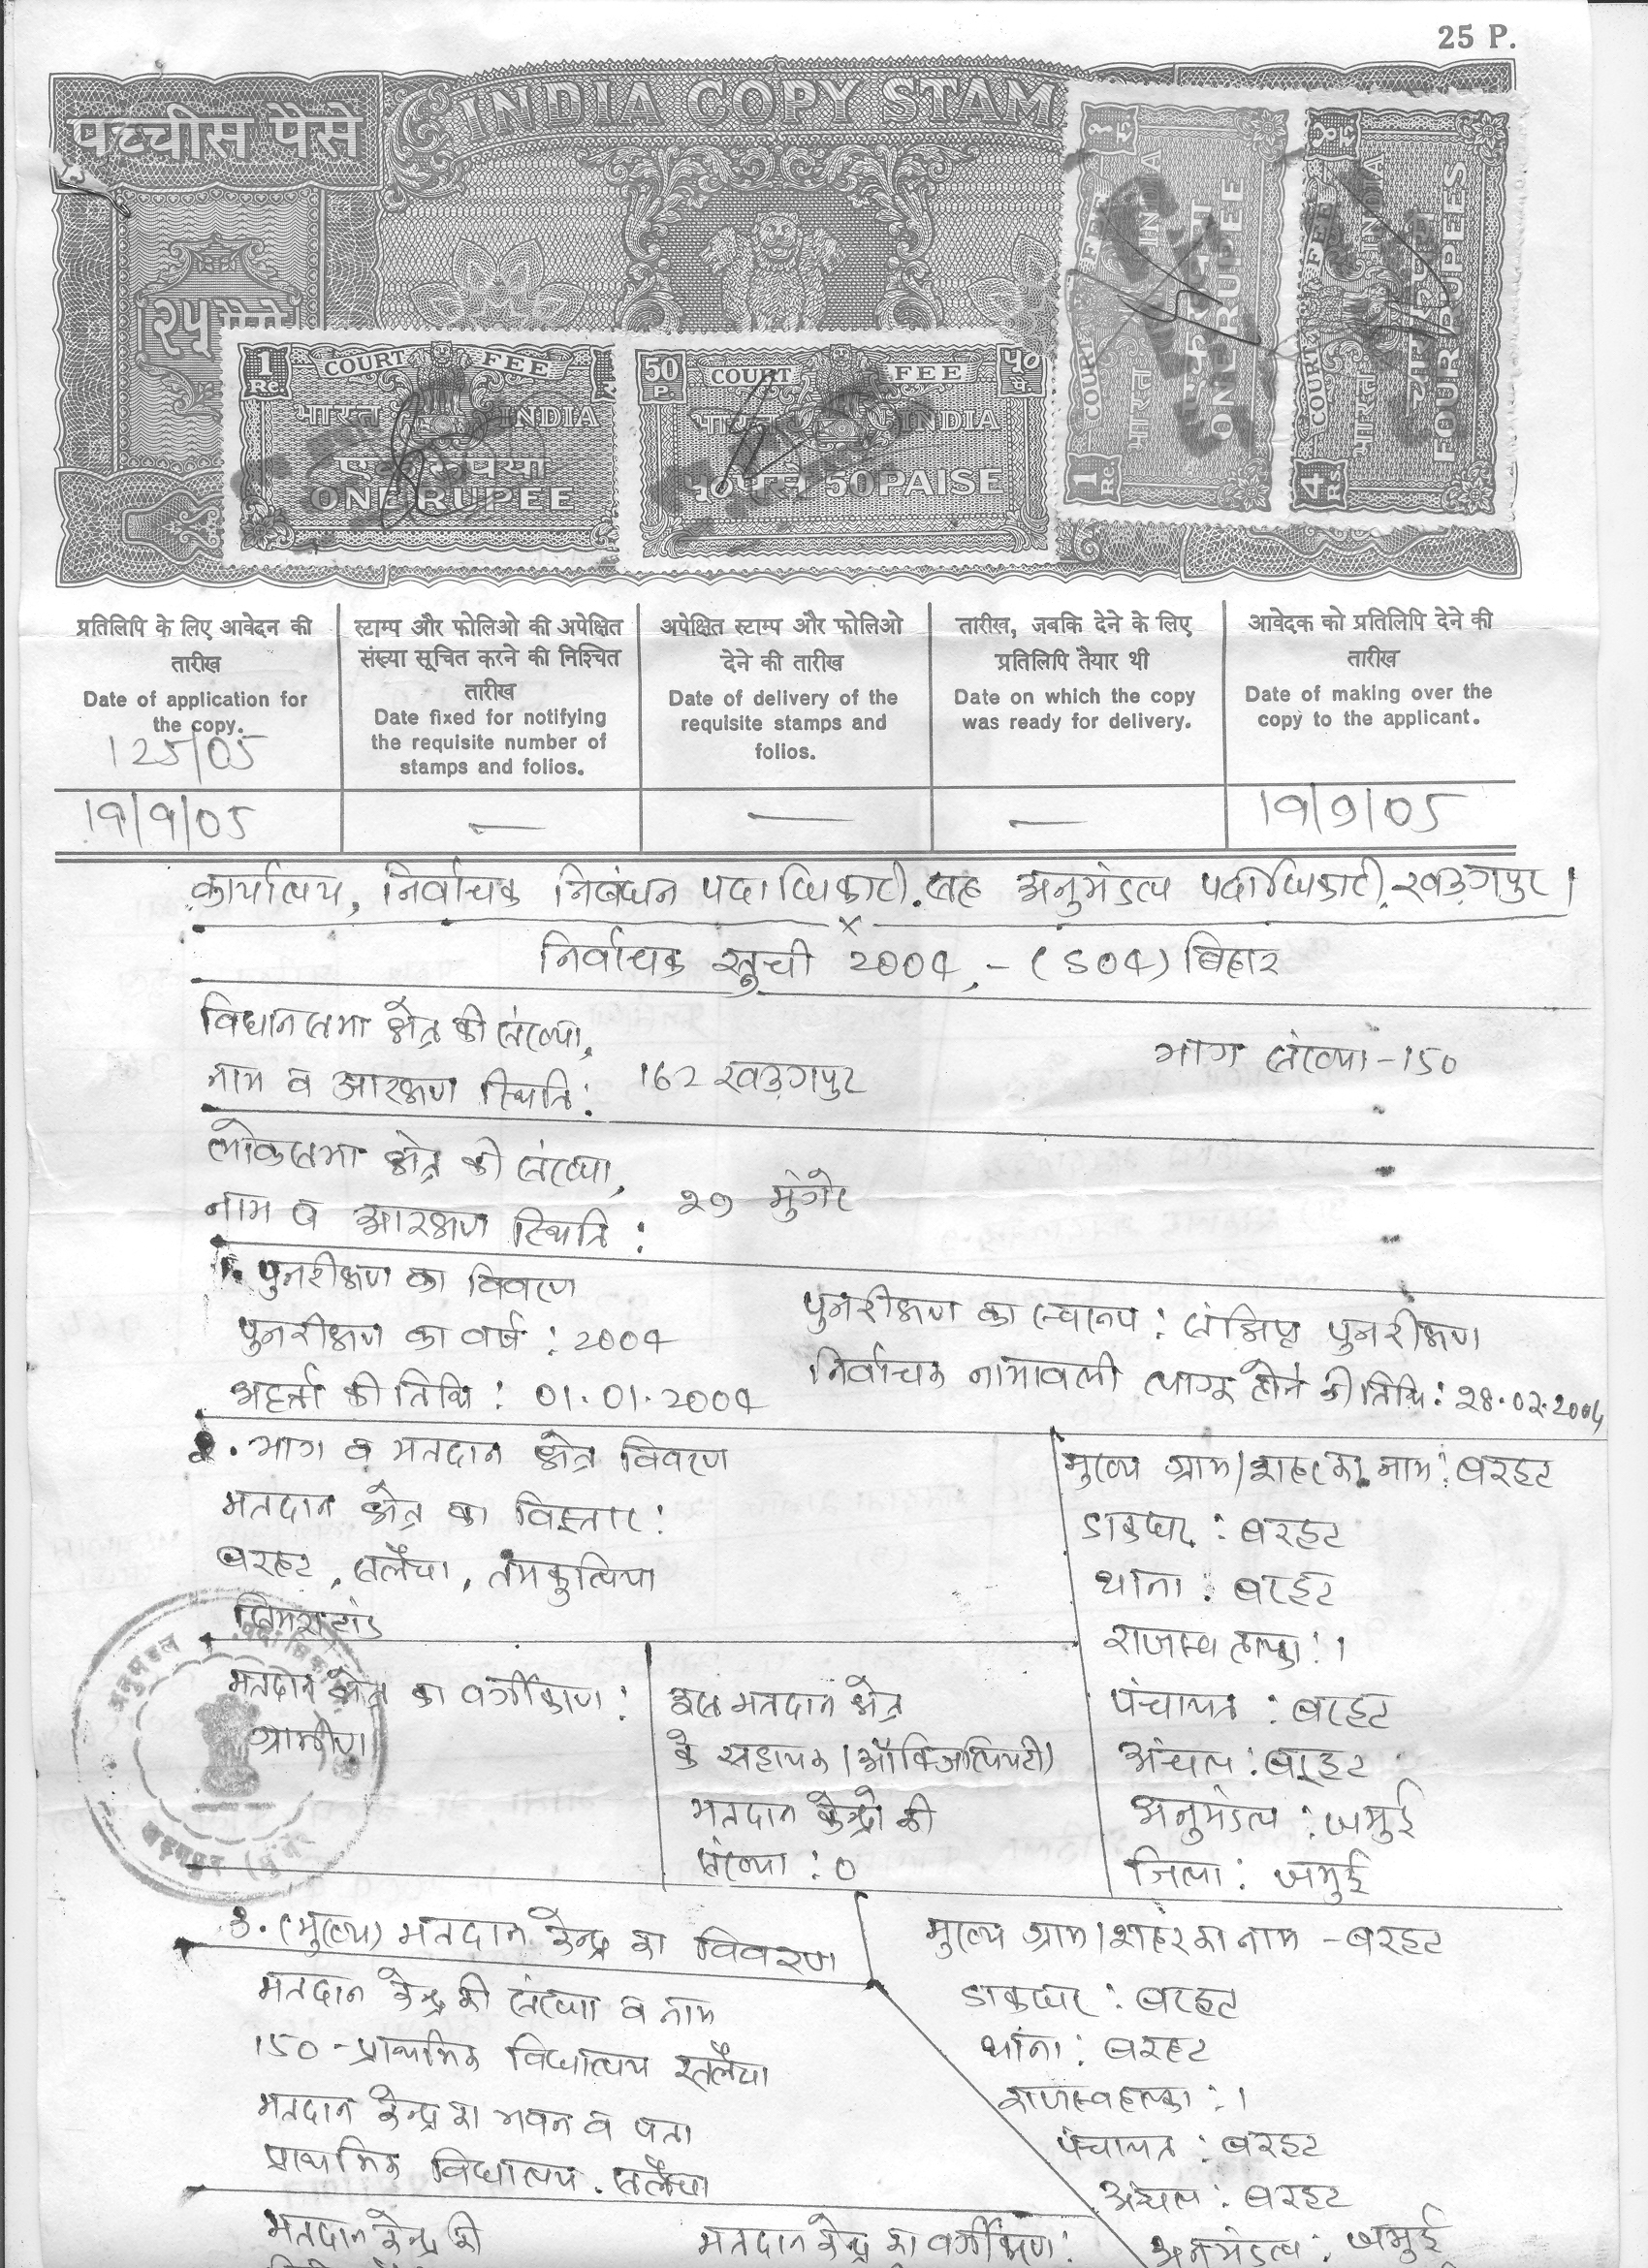 25 P.
पच्चीस पैसे
INDIA COPY STAM
२५ पैसे
1 Re. COURT FEE
भारत INDIA
एक रुपया
ONE RUPEE
50 P. COURT FEE ५० पै.
भारत INDIA
५० पैसे 50 PAISE
1 Re. COURT FEE १ रु.
भारत INDIA
एक रुपया
ONE RUPEE
4 Rs. COURT FEE ४ रु.
भारत INDIA
चार रुपये
FOUR RUPEES
प्रतिलिपि के लिए आवेदन की तारीख
Date of application for the copy.
125/05
स्टाम्प और फोलिओ की अपेक्षित संख्या सूचित करने की निश्चित तारीख
Date fixed for notifying the requisite number of stamps and folios.
अपेक्षित स्टाम्प और फोलिओ देने की तारीख
Date of delivery of the requisite stamps and folios.
तारीख, जबकि देने के लिए प्रतिलिपि तैयार थी
Date on which the copy was ready for delivery.
आवेदक को प्रतिलिपि देने की तारीख
Date of making over the copy to the applicant.
19/9/05 — — — 19/9/05
कार्यालय, निर्वाचक निबंधन पदाधिकारी सह अनुमंडल पदाधिकारी, खड़गपुर।
निर्वाचक सूची 2004, - (S04) बिहार
विधानसभा क्षेत्र की संख्या,
नाम व आरक्षण स्थिति: 162 खड़गपुर भाग संख्या - 150
लोकसभा क्षेत्र की संख्या,
नाम व आरक्षण स्थिति: २७ मुंगेर
1. पुनरीक्षण का विवरण
पुनरीक्षण का वर्ष: 2004 पुनरीक्षण का स्वरूप: संक्षिप्त पुनरीक्षण
अहर्ता की तिथि: 01.01.2004 निर्वाचक नामावली लागू होने की तिथि: २8.0२.2004
२. भाग व मतदान क्षेत्र विवरण
मतदान क्षेत्र का विस्तार:
बरहट, सलैया, तमकुलिया
मुख्य ग्राम/शहर का नाम: बरहट
डाकघर: बरहट
थाना: बरहट
राजस्व हल्का: 1
पंचायत: बरहट
अंचल: बरहट
अनुमंडल: जमुई
जिला: जमुई
मतदान क्षेत्र का वर्गीकरण:
ग्रामीण
इस मतदान क्षेत्र
के सहायक (ऑक्जिलियरी)
मतदान केन्द्रों की
संख्या: 0
अनुमण्डल पदाधिकारी
खड़गपुर (मुंगेर)
3. (मुख्य) मतदान केन्द्र का विवरण
मतदान केन्द्र की संख्या व नाम
150 - प्राथमिक विद्यालय सलैया
मतदान केन्द्र का भवन व पता
प्राथमिक विद्यालय, सलैया
मुख्य ग्राम/शहर का नाम - बरहट
डाकघर: बरहट
थाना: बरहट
राजस्व हल्का: 1
पंचायत: बरहट
अंचल: बरहट
अनुमंडल: जमुई
मतदान केन्द्र की मतदान केन्द्र का वर्गीकरण: